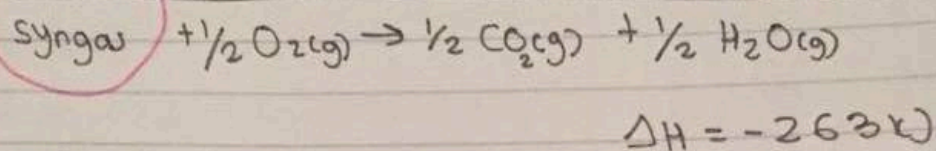 syngas + 1/2 O2(g) → 1/2 CO2(g) + 1/2 H2O(g)
ΔH = -263 kJ